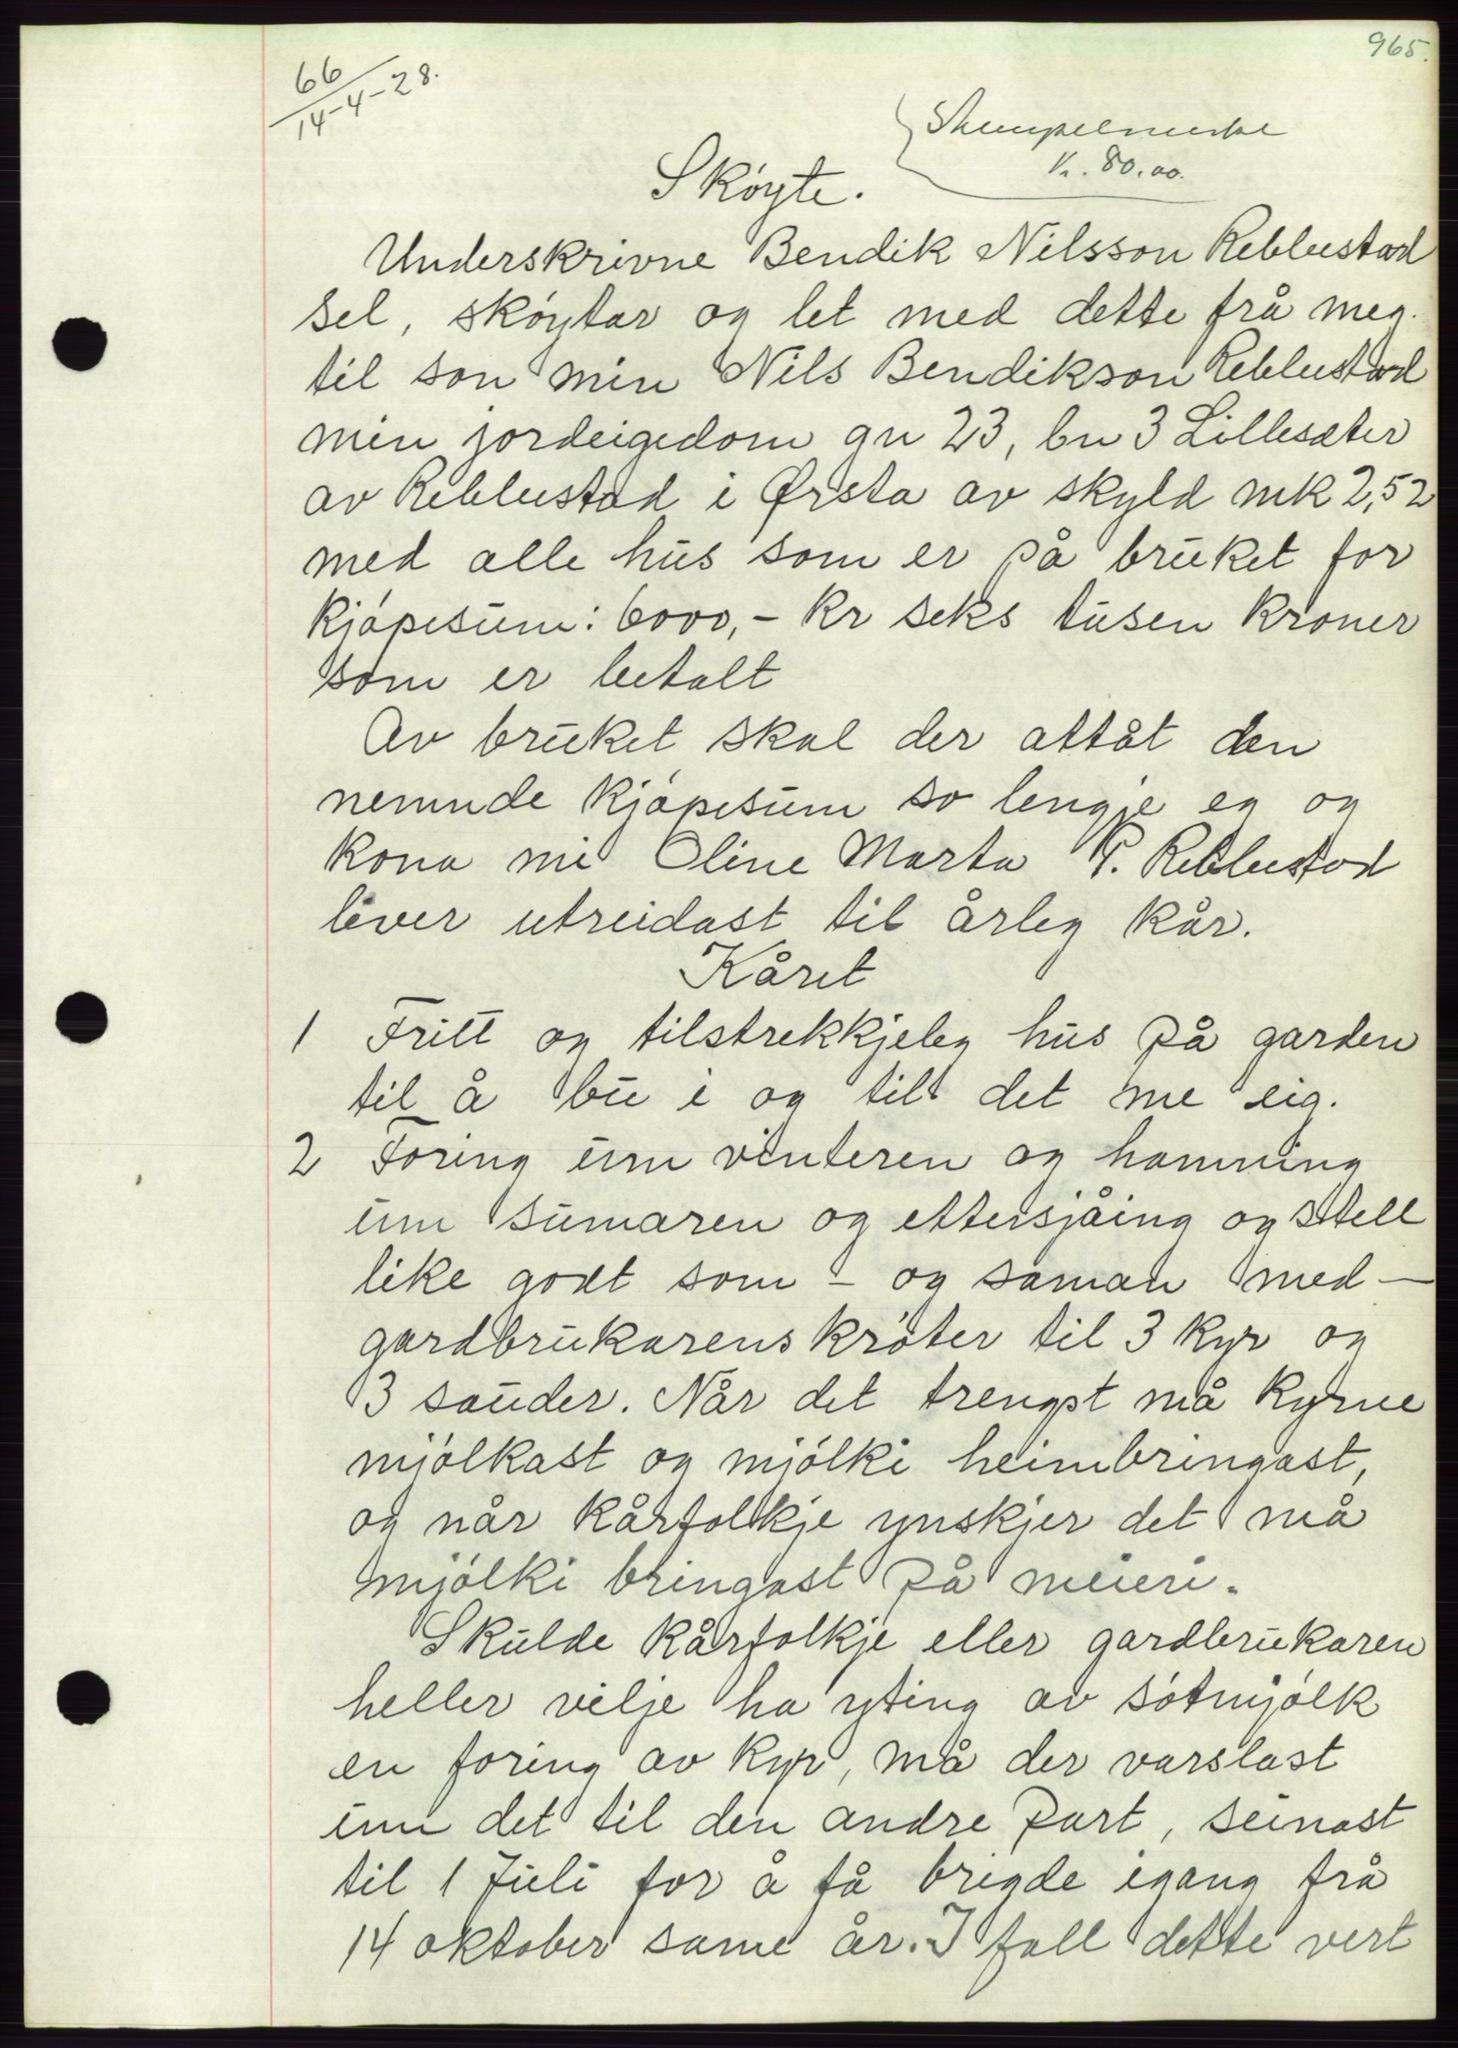 965.
66
14-4-28.
Stempelmerke
Kr. 80.00.
Skøyte.
Underskrivne Bendik Nilsson Rebbestad
sel, skøytar og let med dette frå meg
til son min Nils Bendikson Rebbestad
min jordeigedom gn 23, bn 3 Lillesæter
av Rebbestad i Ørsta av skyld mk 2,52
med alle hus som er på bruket for
kjøpesum: 6000,- kr seks tusen kroner
som er betalt
Av bruket skal der attåt den
nemnde kjøpesum so lengje eg og
kona mi Oline Marta P. Rebbestad
lever utreidast til årleg kår.
Kåret
1 Fritt og tilstrekkjeleg hus på garden
til å bu i og til det me eig.
2 Foring um vinteren og hamning
um sumaren og ettersjåing og stell
like godt som - og saman med -
gardbrukarens krøter til 3 kyr og
3 sauder. Når det trengst må kyrne
mjølkast og mjølki heimbringast,
og når kårfolkje ynskjer det må
mjølki bringast på meieri.
Skulde kårfolkje eller gardbrukaren
heller vilje ha yting av søtmjølk
en foring av kyr, må der varslast
um det til den andre part, seinast
til 1 Juli for å få brigde igang frå
14 oktober same år. I fall dette vert